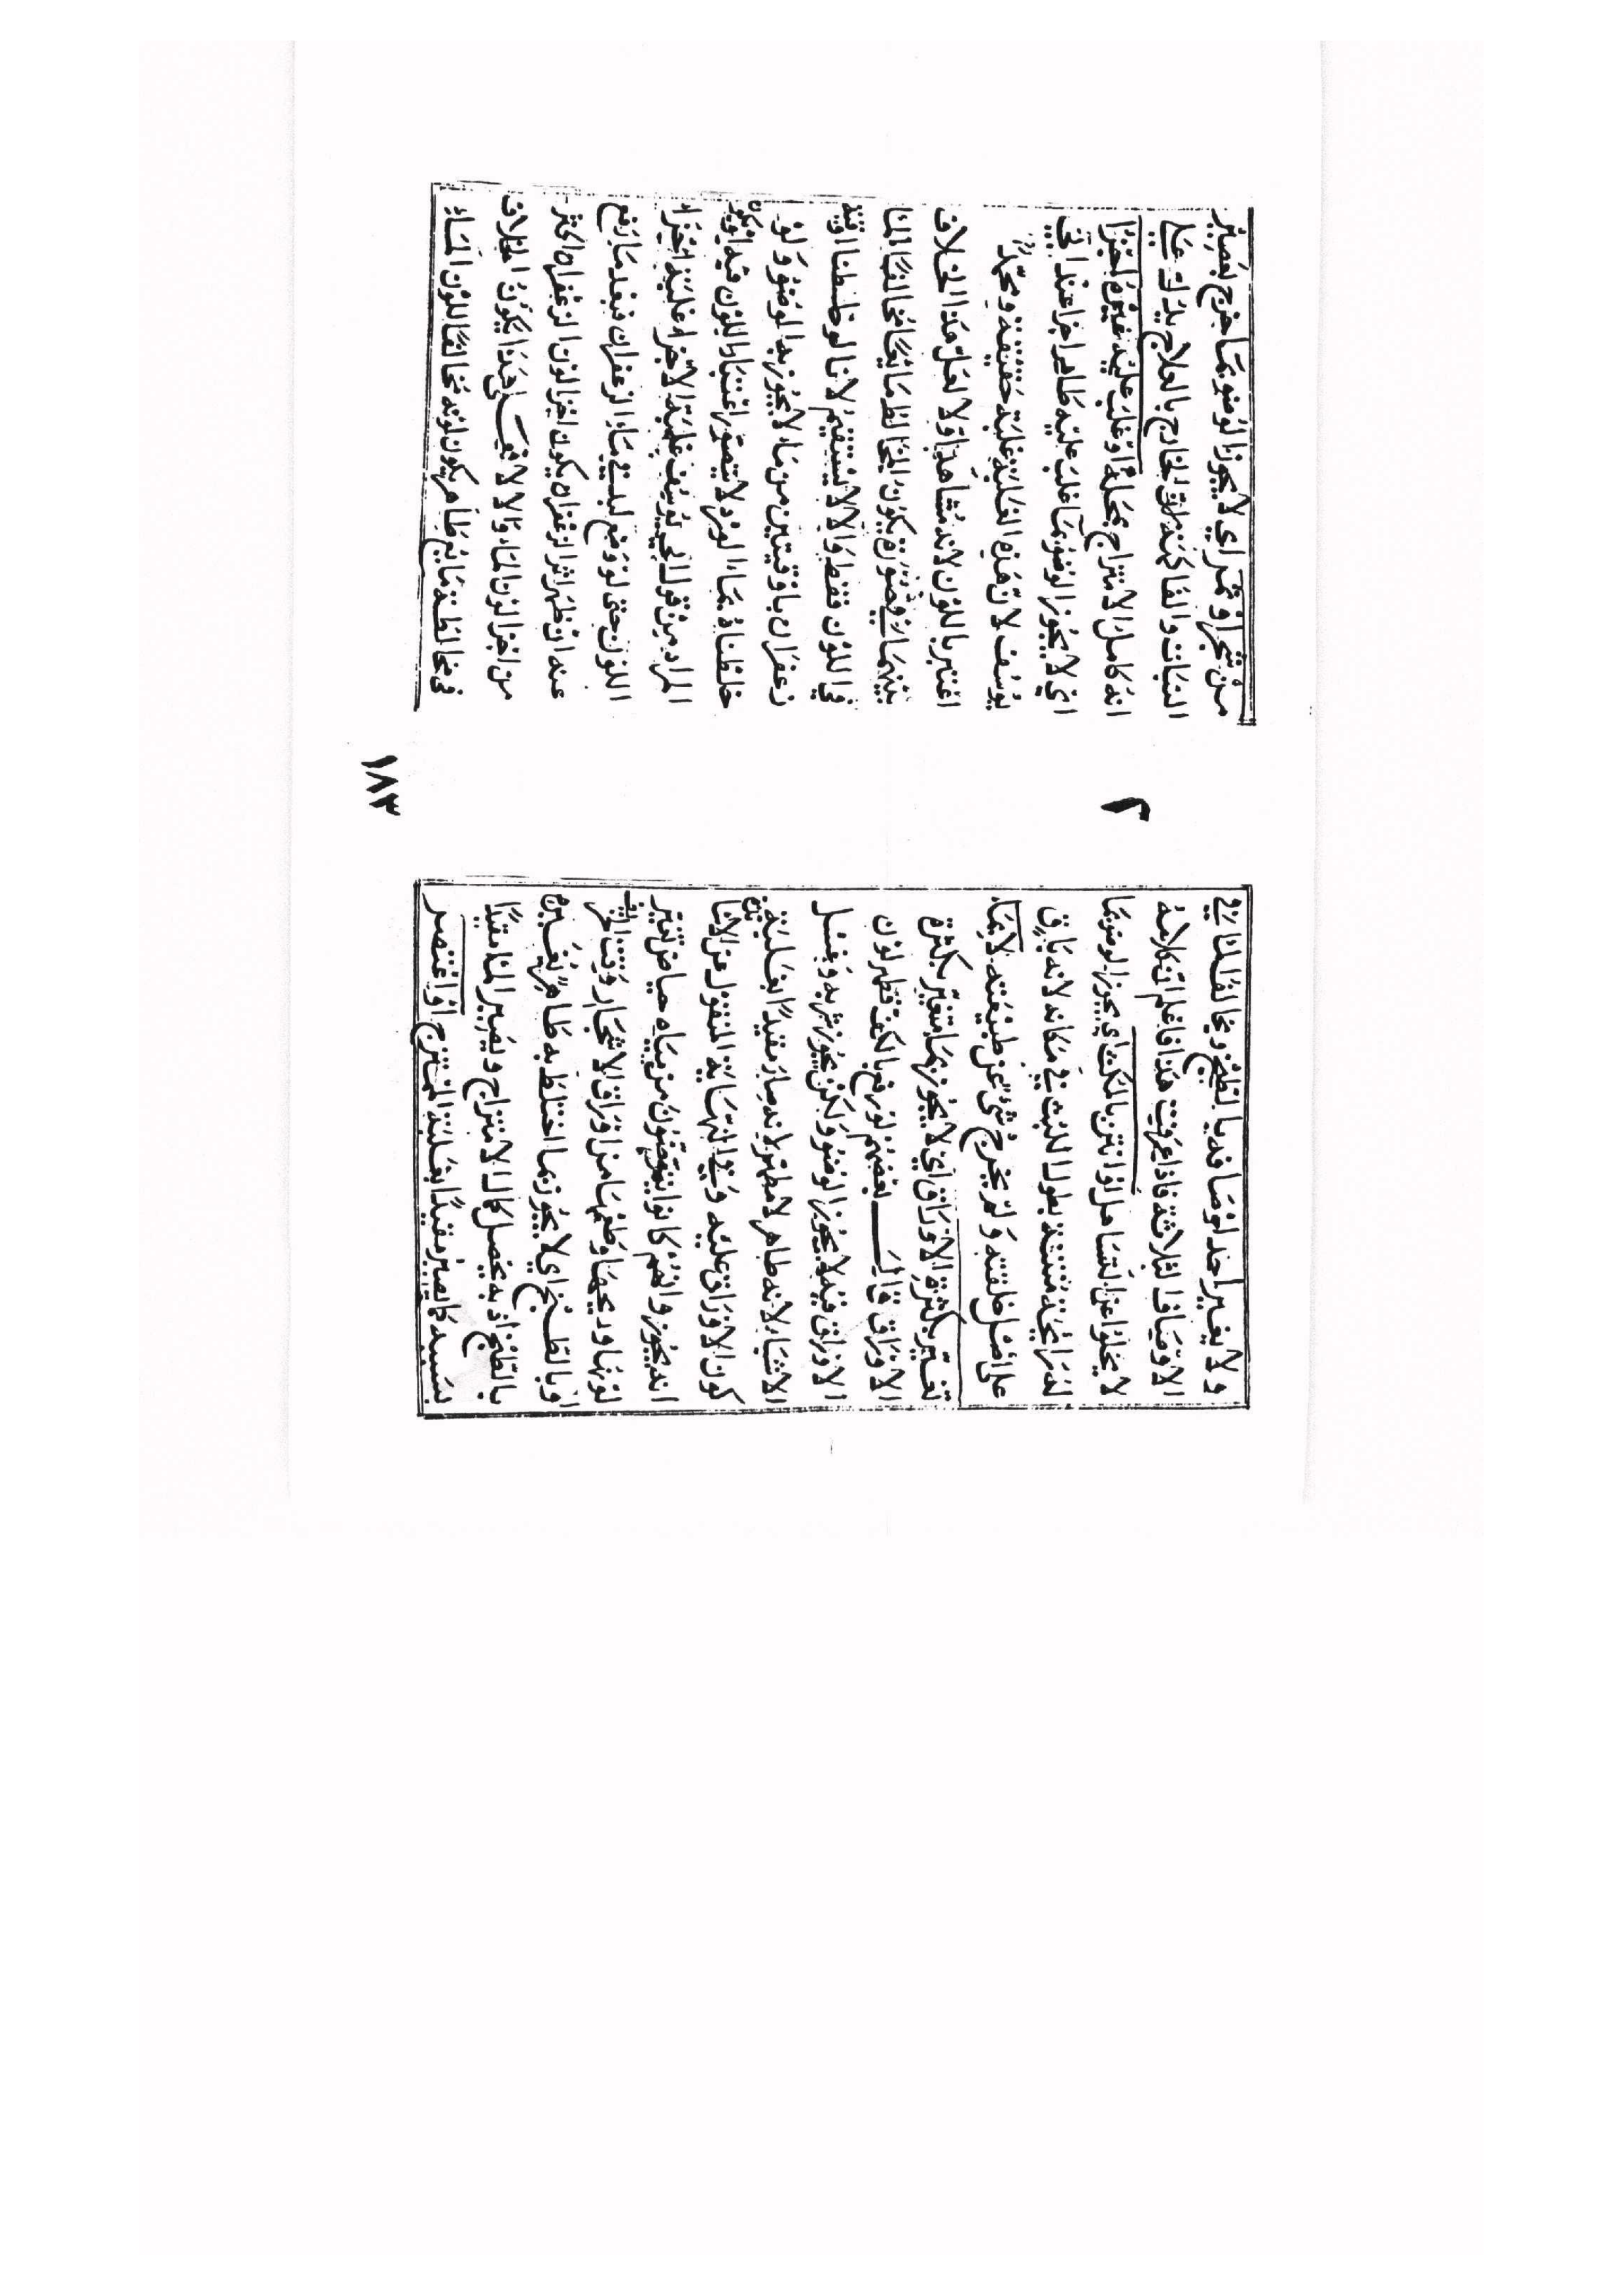 ولا يغير احد اوصافه بالطبخ ومخالفا للماء في
الاوصاف الثلاثة فاذا عرفت هذا فاعلم ان كلامه
لا يخلوا عن التساهل لو انتن بالمكث اي يجوز الوضوء بما
له رائحة منتنة بطول اللبث في مكانه لانه باق
على اصل خلقته ولم يخرج شئ عن طبيعته لا بما
تغير بكثرة الاوراق اي لا يجوز بما تغير بكثرة
الاوراق قال بعضهم لو رفع بالكف فظهر لون
الاوراق فيه لا يجوز الوضوء ولكن يجوز شربه وغسل
الاشياء لانه طاهر لا مطهر لانه صار مقيدا بغلبة
كون الاوراق عليه وفي النهاية المنقول عن
انه يجوز وانهم كانوا يتوضؤن من مياه حياض تغير
لونها وريحها وطعمها من اوراق الاشجار وقت الخريف
او بالطبخ اي لا يجوز بما اختلط به طاهر بغيره
بالطبخ اذ به يحصل كمال الامتزاج ويصير الماء مقيدا
بسببه كما يصير مقيدا بغلبة الممتزج او اعتصر
٢
١٨٣
من شجر او ثمر اي لا يجوز الوضوء بما خرج بعصير
النبات والفاكهة فان الخارج بالعلاج يدل على
انه كامل الامتزاج بمحله او غلب عليه غيره اجزا
اي لا يجوز الوضوء بما غلب عليه طاهر اجزا عند ابي
يوسف لان هذه الغلبة غلبة حقيقة ومحمد
اعتبر باللون لانه مشاهد اولا لعل هذا الخلاف
بينهما في صورة يكون المخالط مايعا مخالفا للماء
في اللون فقط والا لا يستقيم لانا لو خلطنا اوقية
زعفران باوقيتين من ماء لا يجوز به الوضوء ولو
خلطناه بماء الورد لا يتصور اعتبار اللون فيه او يكون
المراد من قول ابي يوسف غلبة الاجزاء غلبة اجزاء
اللون حتى لو وضع لبد في ماء الزعفران فبعد ما رفع
عنه ان ظهر اثر الزعفران يكون اجزا لون الزعفران اكثر
من اجزا لون الماء والا لا فعلى هذا يكون الخلاف
في مخالطة مايع طاهر يكون لونه مخالفا للون الماء